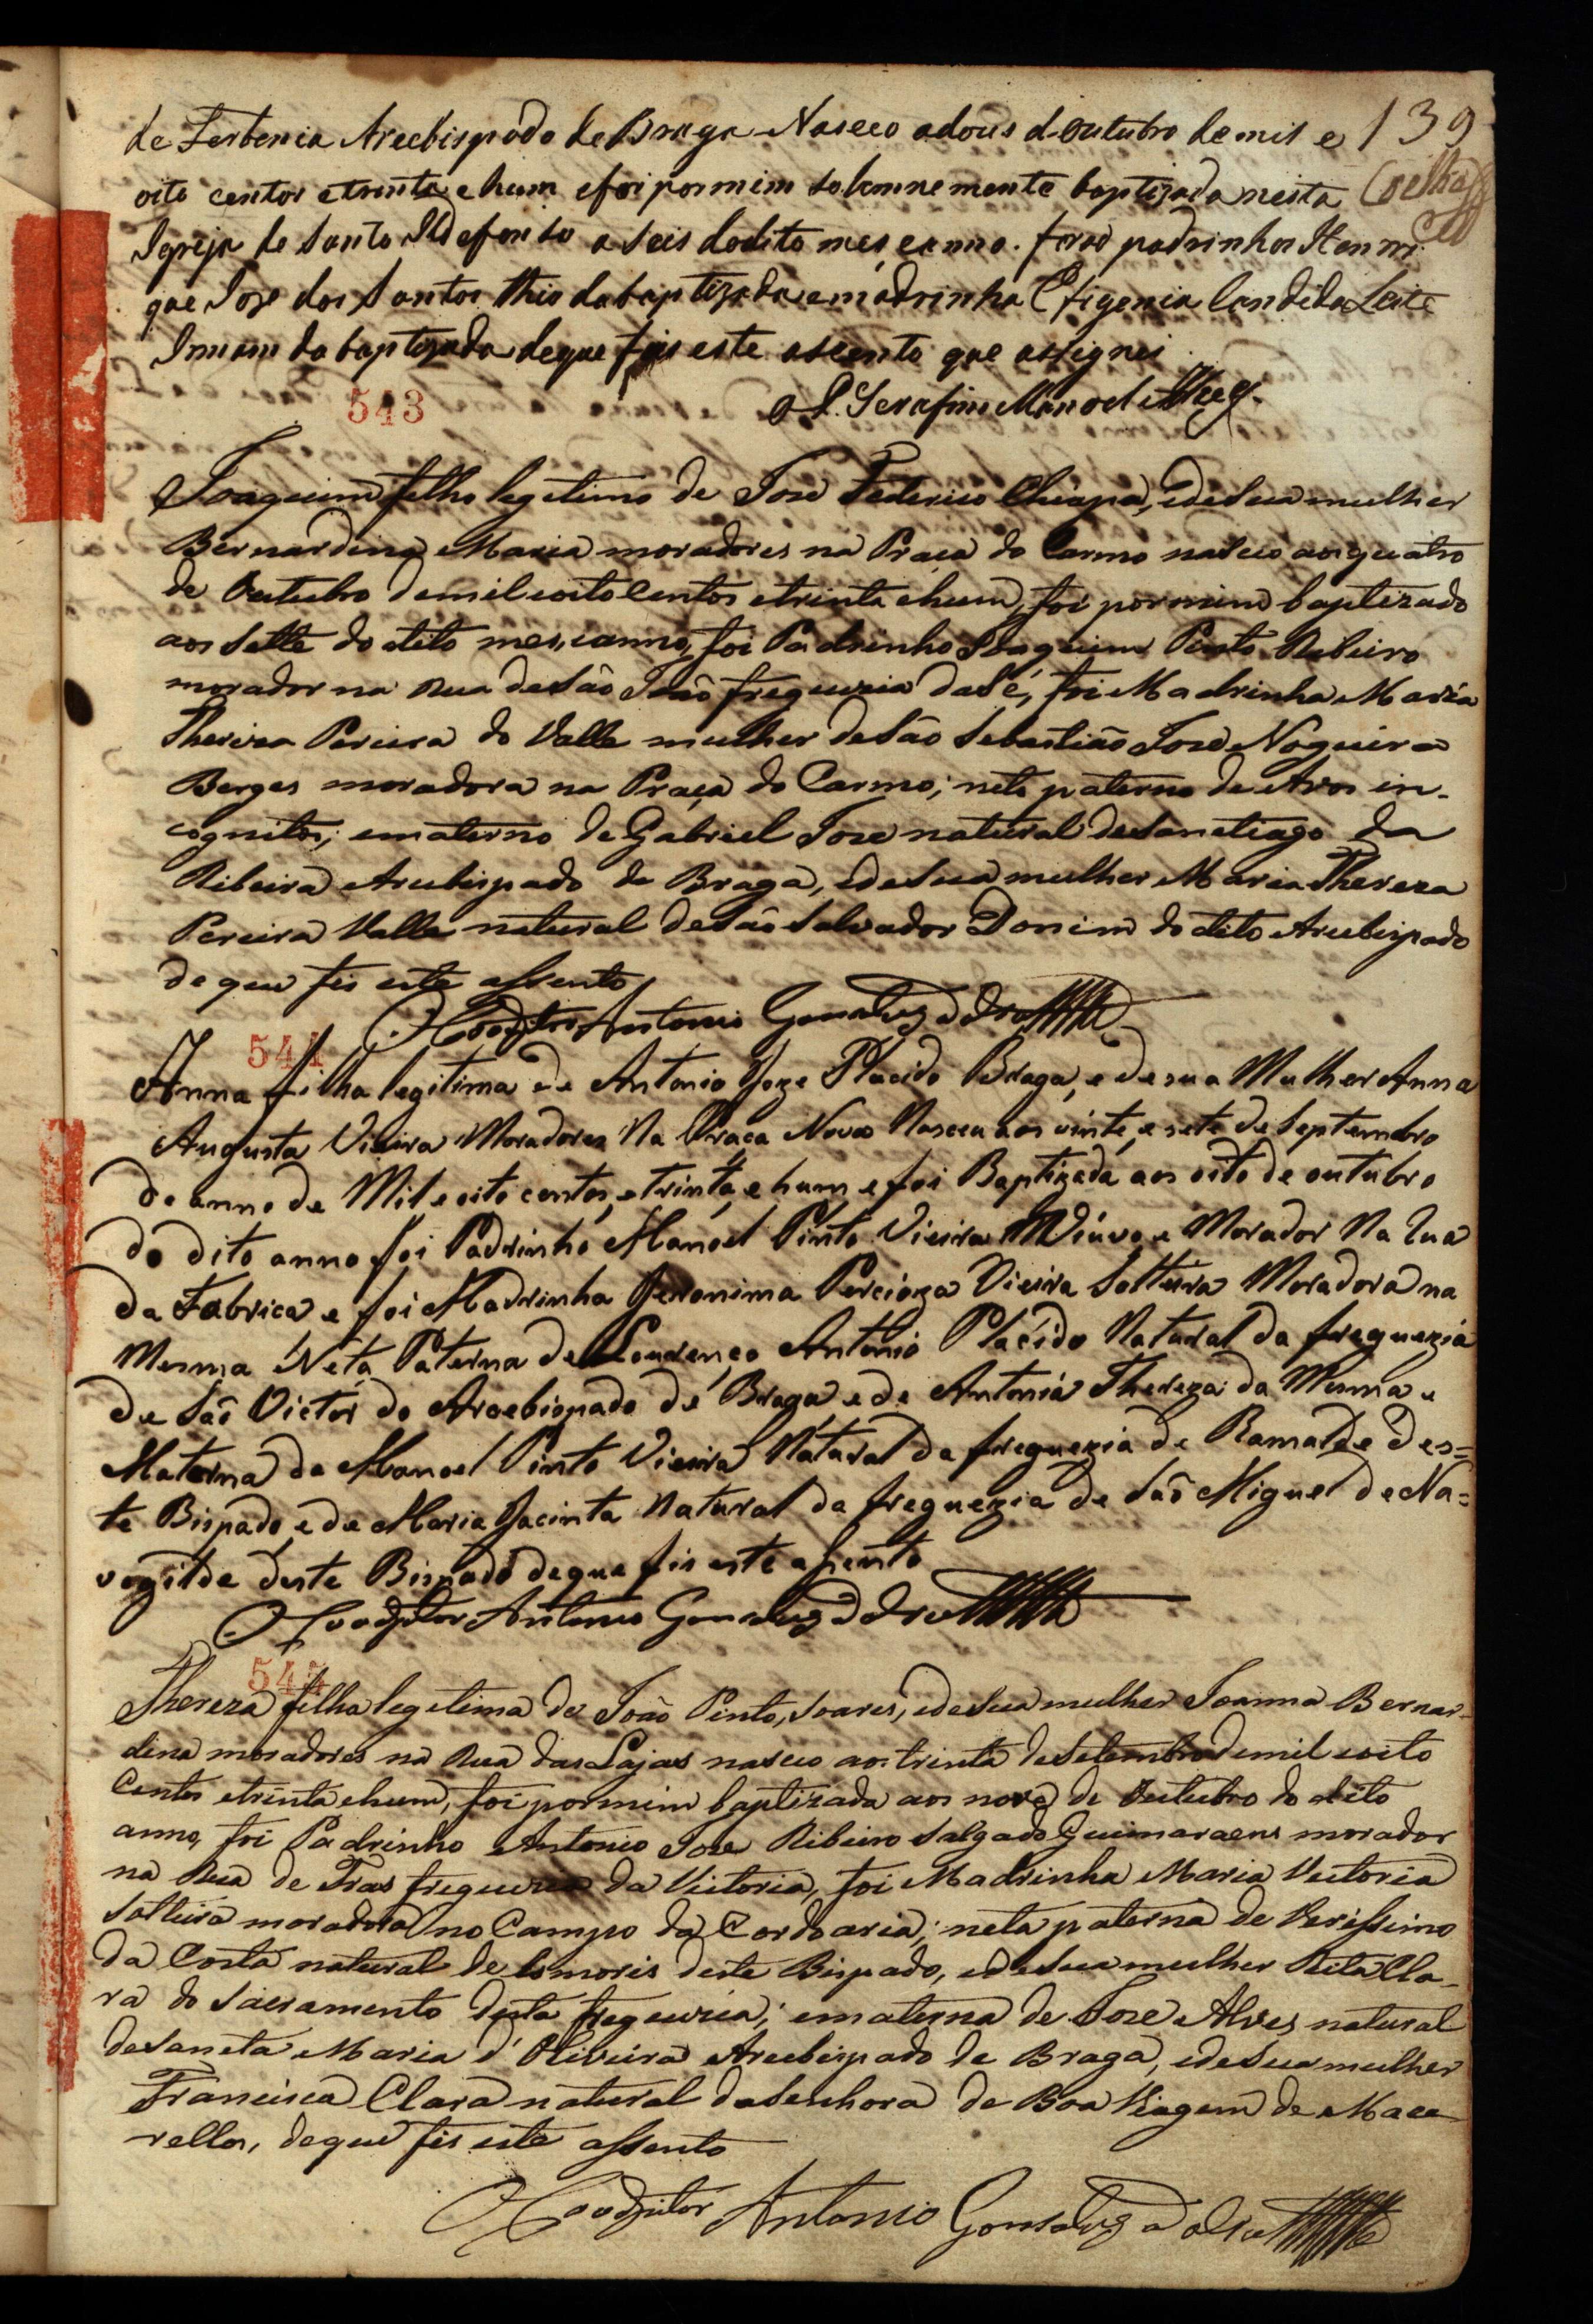 139
Coelho
de Serbenia Arcebispado de Braga Naseeo adous d-outubro de mil e
oito centos e trinta e hum e foi por mim solemnemente baptizada nesta
Igreja de Santo Ildefonso a seis do dito mes e anno. forão padrinhos Henrri
que Joze dos Santos thio da baptizada e madrinha Efigenia Candida Leite
Irmam da baptizada de que fis este assento que assignei
O P. Serafim Manoel
543
Joaquim filho legitimo de José Federico Chiapa, e de sua mulher
Bernardina Maria moradores na Praça do Carmo nasceo aos quatro
de Outubro de mil e oito centos e trinta e hum, foi por mim baptizado
aos sette do dito mes, e anno, foi Padrinho Joaquim Pinto Ribeiro
morador na Rua de São João freguezia da Sé, foi Madrinha Maria
Thereza Pereira do Valle mulher de São Sebastião José Nogueira
Borges moradora na Praça do Carmo; neto paterno de Avos in-
cognitos; e materno de Gabriel Jose natural de Sanctiago da
Ribeira Arcebispado de Braga, e de sua mulher Maria Thereza
Pereira Valle natural de São Salvador Donim do dito Arcebispado
de que fis este assento
O Coadjtor Antonio Gonsalvez
544
Anna filha legitima de Antonio Joze Placido Braga, e de sua Mulher Anna
Augusta Vieira Moradores Na Praca Nova Nasceu aos vinte, e sete de Septembro
do anno de Mil e oito centos, e trinta, e hum, e foi Baptizada aos oito de outubro
do dito anno foi Padrinho Manoel Pinto Vieira Viúvo e Morador Na Rua
da Fabrica e foi Madrinha Jeronima Perciosa Vieira Solteira Moradora na
Mesma Neta Paterna de Lourenço Antonio Placido Natural da freguezia
de São Victor do Arcebispado de Braga e de Antonia Thereza da Mesma e
Materna de Manoel Pinto Vieira Natural da freguezia de Ramalde des=
te Bispado, e de Maria Jacinta Natural da freguezia de São Miguel de Na=
vogilde deste Bispado de que fis este assento
O Coadjtor Antonio Gonsalvez
545
Thereza filha legitima de João Pinto, Soares, e de sua mulher Joanna Bernar-
dina moradores na Rua das Lajas nasceo aos trinta de Setembro de mil e oito
Centos e trinta e hum, foi por mim baptizada aos nove de Outubro do dito
anno, foi Padrinho Antonio Joze Ribeiro Salgado Guimaraens morador
na Rua de Tras freguezia da Victoria, foi Madrinha Maria Victoria
Solteira moradora no Campo da Cordoaria; neta paterna de Verissimo
da Costa natural de Esmoris deste Bispado, e de sua mulher Rita Cla-
ra do Sacramento desta freguezia; e materna de Joze Alves natural
de Sancta Maria d'Oliveira Arcebispado de Braga, e de sua mulher
Francisca Clara natural da Senhora de Boa Viagem de Mace
rellos, de que fis este assento
O Coadjutor Antonio Gonsalvez